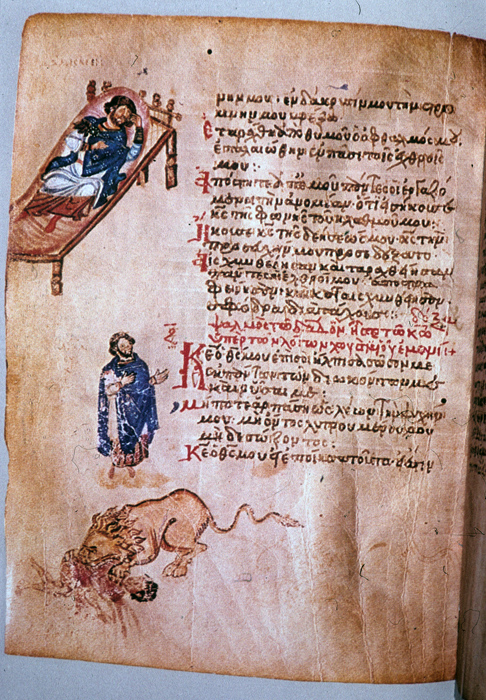 μνην μου· ἐν δάκρυσίν μου τὴν στρω
μνήν μου βρέξω
Ἐταράχθη ἀπὸ θυμοῦ ὁ ὀφθαλμός μου
ἐπαλαιώθην ἐν πᾶσι τοῖς ἐχθροῖς
μου:
Ἀπόστητε ἀπ' ἐμοῦ πάντες οἱ ἐργαζό
μενοι τὴν ἀνομίαν· ὅτι εἰσήκουσε
κς τῆς φωνῆς τοῦ κλαυθμοῦ μου:
Ἤκουσε κς τῆς δεήσεώς μου· κς τὴν
προσευχήν μου προσεδέξατο
Αἰσχυνθείησαν καὶ ταραχθείησαν
πάντες οἱ ἐχθροί μου·
σφόδρα διὰ τάχους:
ψαλμὸς τῷ δαδ ὃν ᾖσεν τῷ κω
ὑπὲρ τῶν λόγων χουσὶ υἱοῦ ἰεμενεί
Κε ὁ θς μου ἐπὶ σοὶ ἤλπισα σῶσόν με
ἐκ πάντων τῶν διωκόντων με
καὶ ῥῦσαί με:
Μήποτε ἁρπάσῃ ὡς λέων τὴν ψυχήν
μου· μὴ ὄντος λυτρουμένου
μηδὲ σῴζοντος:
Κε ὁ θς μου εἰ ἐποίησα τοῦτο· εἰ ἔστιν